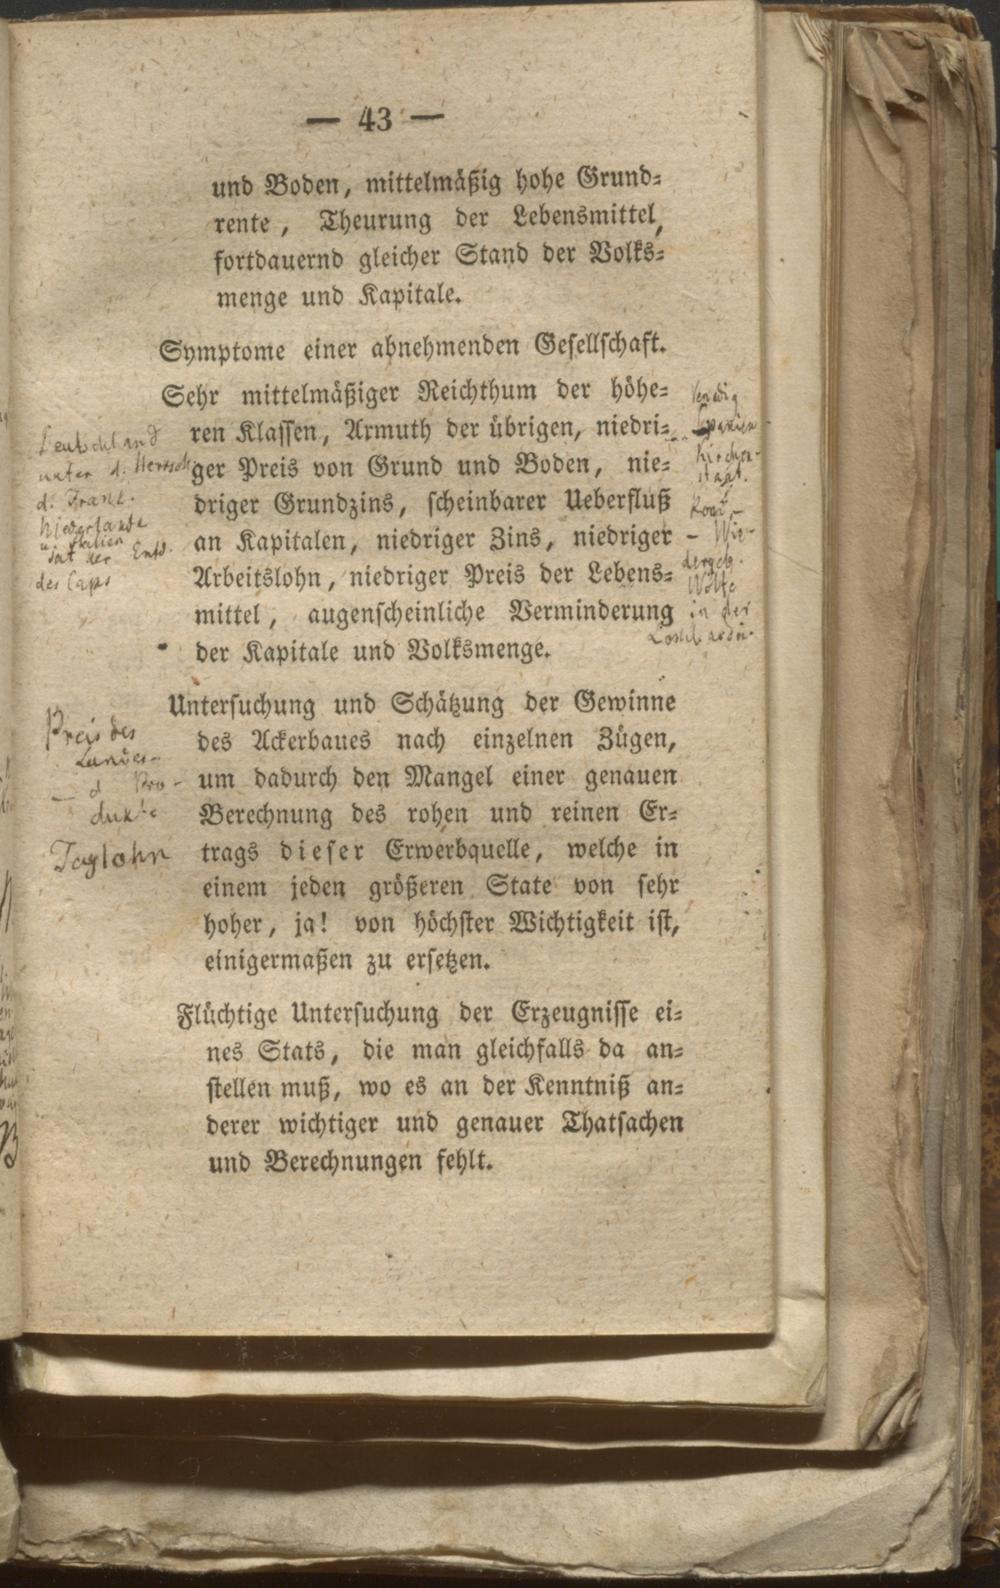 — 43 —
und Boden, mittelmäßig hohe Grund-
rente, Theurung der Lebensmittel,
fortdauernd gleicher Stand der Volks-
menge und Kapitale.
Symptome einer abnehmenden Gesellschaft.
Sehr mittelmäßiger Reichthum der höhe-
ren Klassen, Armuth der übrigen, niedri-
ger Preis von Grund und Boden, nie-
driger Grundzins, scheinbarer Ueberfluß
an Kapitalen, niedriger Zins, niedriger
Arbeitslohn, niedriger Preis der Lebens-
mittel, augenscheinliche Verminderung
der Kapitale und Volksmenge.
Venedig
Spanien
Kirchen-
staat.
Wie-
Wölfe
in der
Lombardei.
Deutschland
unter d. Herrsch
d. Franz.
Niederlande
u. Italien
seit der Entd.
des Caps
Untersuchung und Schätzung der Gewinne
des Ackerbaues nach einzelnen Zügen,
um dadurch den Mangel einer genauen
Berechnung des rohen und reinen Er-
trags dieser Erwerbquelle, welche in
einem jeden größeren State von sehr
hoher, ja! von höchster Wichtigkeit ist,
einigermaßen zu ersetzen.
Preis des
Landes-
— d Pro-
dukte
Taglohn
Flüchtige Untersuchung der Erzeugnisse ei-
nes Stats, die man gleichfalls da an-
stellen muß, wo es an der Kenntniß an-
derer wichtiger und genauer Thatsachen
und Berechnungen fehlt.